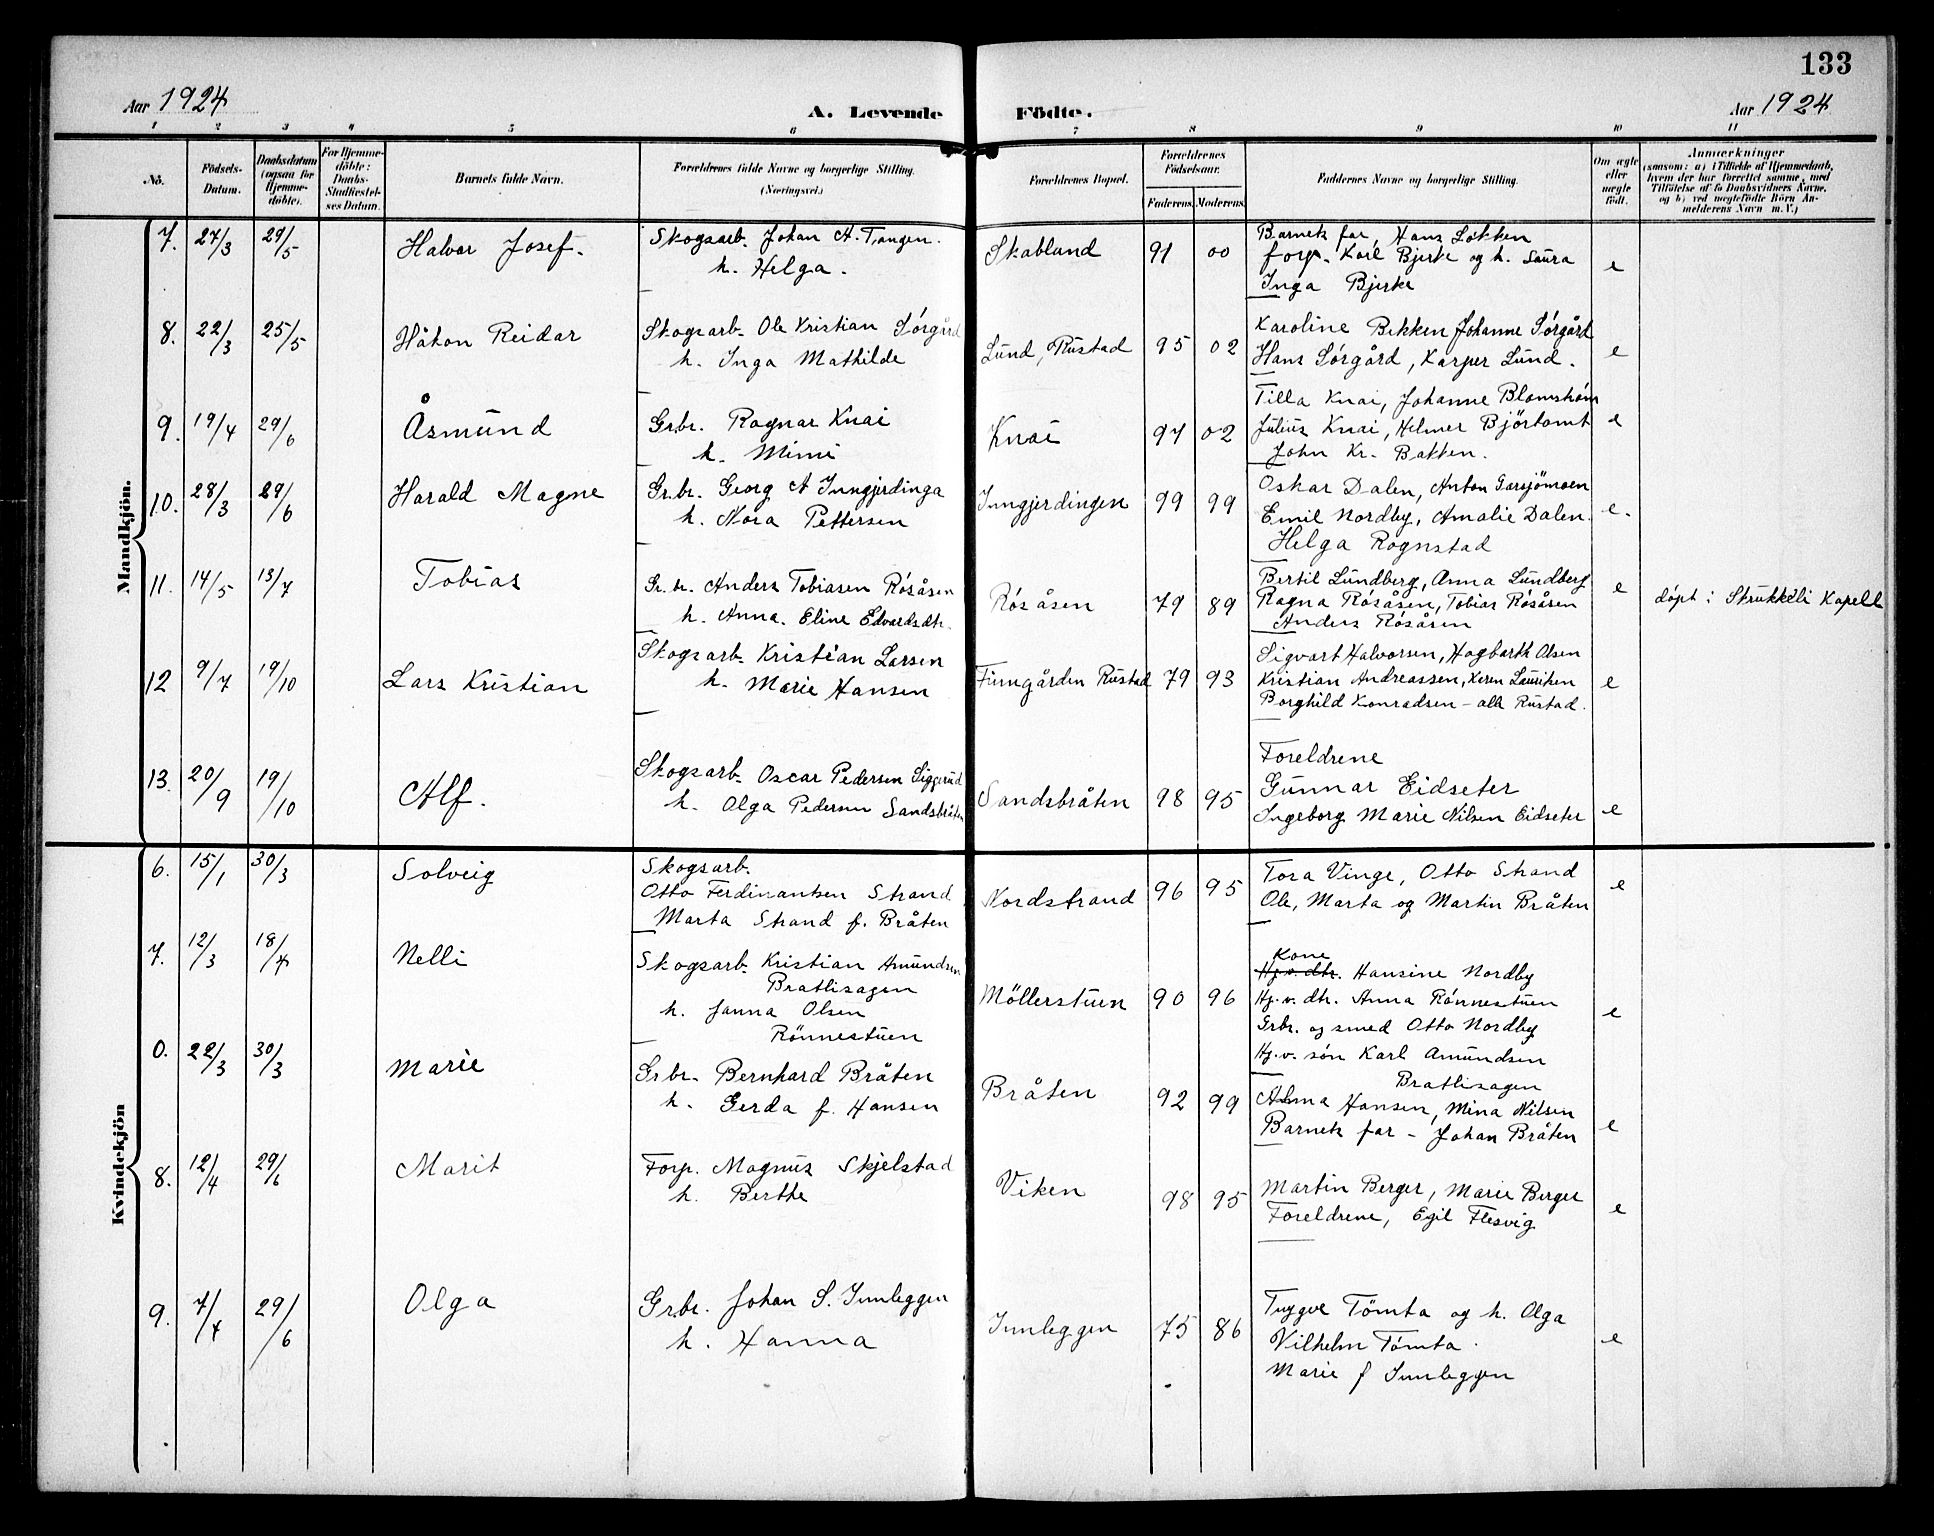 133
Aar 1924
A. Levende Födte.
Aar 1924
1 2 3 4 5 6 7 8 9 10 11
No.
Födsels-Datum.
Daabsdatum (ogsaa for Hjemmedöbte).
For Hjemmedöbte: Daabs-Stadfæstelses Datum.
Barnets fulde Navn.
Forældrenes fulde Navne og borgerlige Stilling. (Næringsvei.)
Forældrenes Bopæl.
Forældrenes Födselsaar.
Faderens. Moderens.
Faddernes Navne og borgerlige Stilling.
Om ægte eller uægte født.
Anmærkninger
(saasom: a) i Tilfælde af Hjemmedaab,
hvem der har forrettet samme, med
Tilföielse af to Daabsvidners Navne.
og b) ved uægtefödte Börn An-
melderens Navn m. V.)
Mandkjön.
7. 27/3 29/5 Halvor Josef. Skogsarb. Johan A. Tangen. h. Helga. Skabland 91 00 Barnets far, Hans Løkken
forp. Karl Bjerke og h. Laura e
Inga Bjerke
8. 22/3 25/5 Håkon Reidar Skogsarb. Ole Kristian Sørgård h. Inga Mathilde Lund, Rustad 95 02 Karoline Bekken Johanne Sørgård
Hans Sørgård, Kasper Lund. e
9. 19/4 29/6 Åsmund Grbr. Ragnar Knai h. Mimi Knai 97 02 Tilla Knai, Johanne Blomshøm
Julius Knai, Helmer Bjørtomt e
John Kr. Bakken.
10. 28/3 29/6 Harald Magne Grbr. Georg A Inngjerdinga h. Nora Pettersen Inngjerdingen 99 99 Oskar Dalen, Anton Garsjømoen
Emil Nordby, Amalie Dalen. e.
Helga Rognstad
11. 14/5 13/7 Tobias Gr.br. Anders Tobiasen Røsåsen h. Anna. Eline Edvardsdtr. Røsåsen 79 89 Bertil Lundberg, Anna Lundberg
Ragna Røsåsen, Tobias Røsåsen e døpt i Strukkeli Kapell
Anders Røsåsen
12 9/7 19/10 Lars Kristian Skogsarb. Kristian Larsen h. Marie Hansen Finngården Rustad 79 93 Sigvart Halvorsen, Hagbarth Olsen
Kristian Andreassen, Karen Lauritsen e
Borghild Konradsen – alle Rustad.
13. 20/9 19/10 Alf. Skogsarb. Oscar Pedersen Siggerud h. Olga Pedersen Sandsbråten Sandsbråten 98 95 Foreldrene
Gunnar Eidseter
Ingeborg Marie Nilsen Eidseter e
Kvindekjön
6. 15/1 30/3 Solveig Skogsarb. Otto Ferdinantsen Strand Marta Strand f. Bråten Nordstrand 96 95 Tora Vinge, Otto Strand e
Ole, Marta og Martin Bråten
7. 12/3 18/4 Nelli Skogsarb. Kristian Amundsen Bratlisagen h. Janna Olsen Rønnestuen Möllerstuen 90 96 Kone
Hj.v. dtr. Hansine Nordby
Hj.v. dtr. Anna Rønnestuen e
Grbr. og smed Otto Nordby
Hj.v. søn Karl Amundsen
Bratlisagen
0. 22/3 30/3 Marie Grbr. Bernhard Bråten h. Gerda f. Hansen Bråten 92 99 Alma Hansen, Mina Nilsen
Barnets far – Johan Bråten e
8. 12/4 29/6 Marit Forp. Magnus Skjelstad h. Berthe Viken 98 95 Martin Berger, Marie Berger
Foreldrene, Egil Flesvig e
9. 7/4 29/6 Olga Grbr. Johan S. Innleggen h. Hanna Innleggen 75 86 Trygve Tømta og h. Olga
Vilhelm Tømta. e
Marie f Innleggen